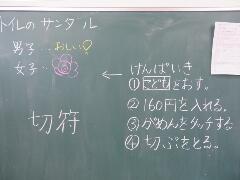 トイレのサンダル
男子…おしい!
女子…
切符
← けんばいき
① こどもをおす。
② 160円を入れる。
③ がめんをタッチする
④ 切ぷをとる。